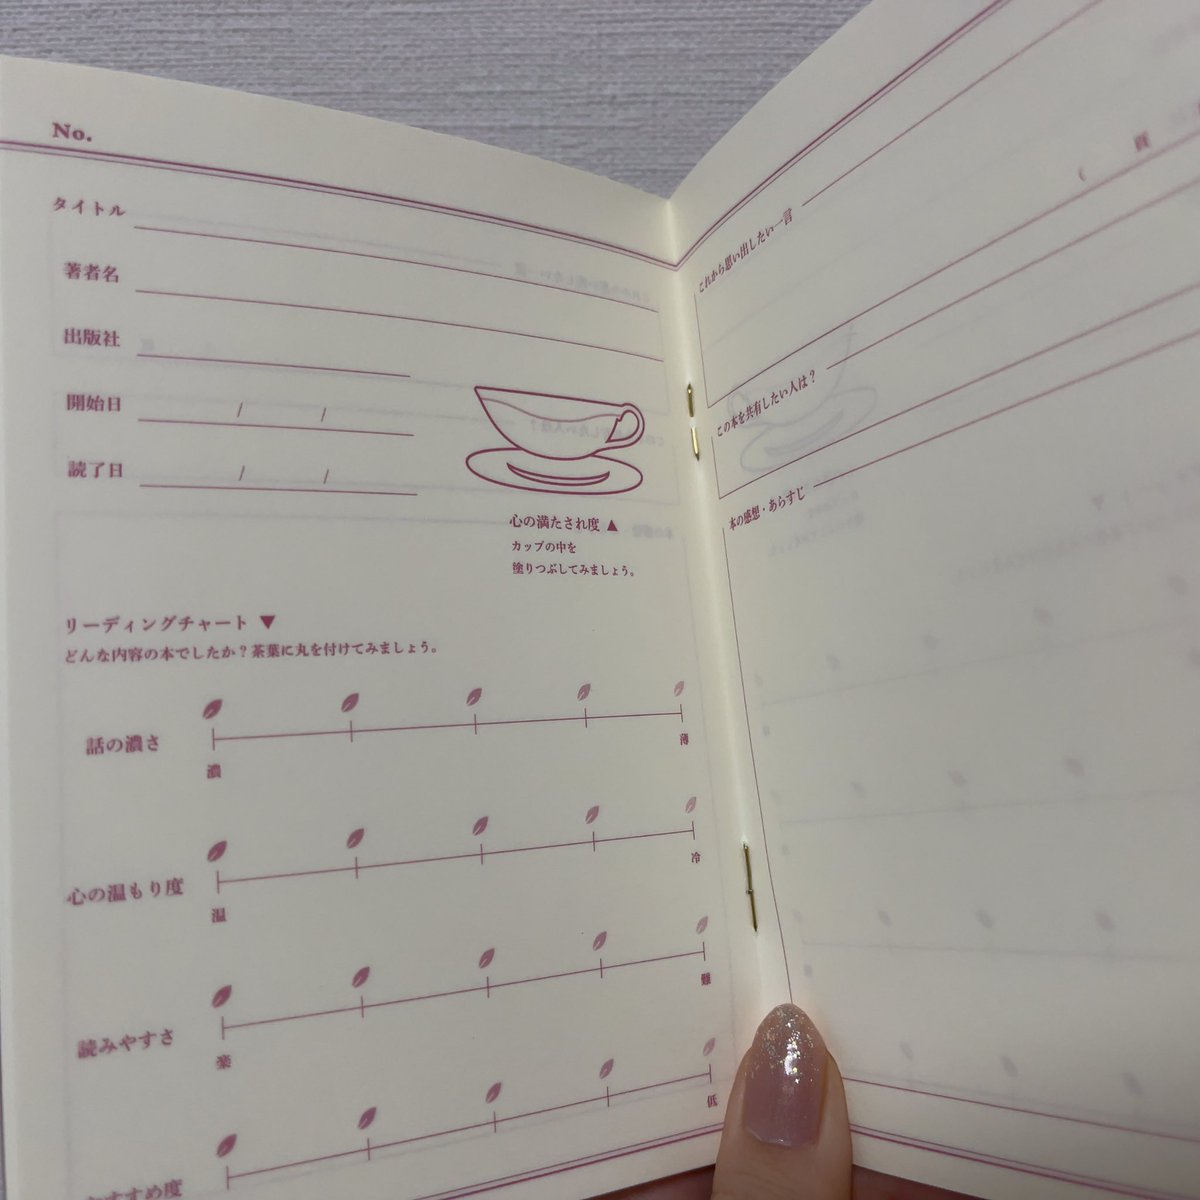 No.
タイトル
著者名
出版社
開始日 / /
読了日 / /
心の満たされ度 ▲
カップの中を
塗りつぶしてみましょう。
リーディングチャート ▼
どんな内容の本でしたか？茶葉に丸を付けてみましょう。
話の濃さ
濃 薄
心の温もり度
温 冷
読みやすさ
楽 難
おすすめ度
低
これから思い出したい一言
( 頁
この本を共有したい人は？
本の感想・あらすじ